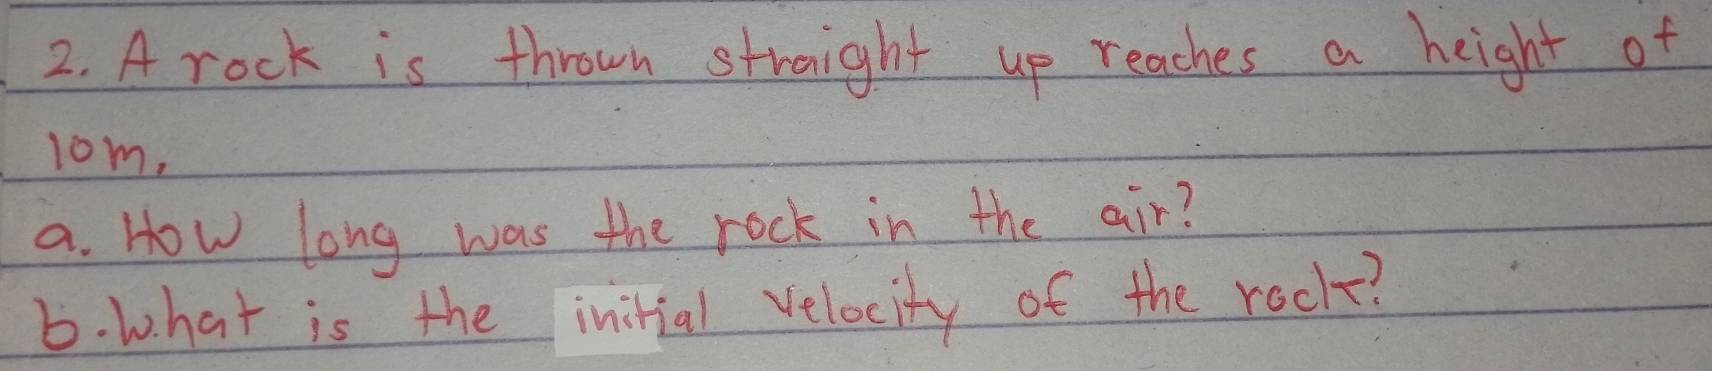 2. A rock is thrown straight up reaches a height of
10m,
a. How long was the rock in the air?
b. What is the initial velocity of the rock?